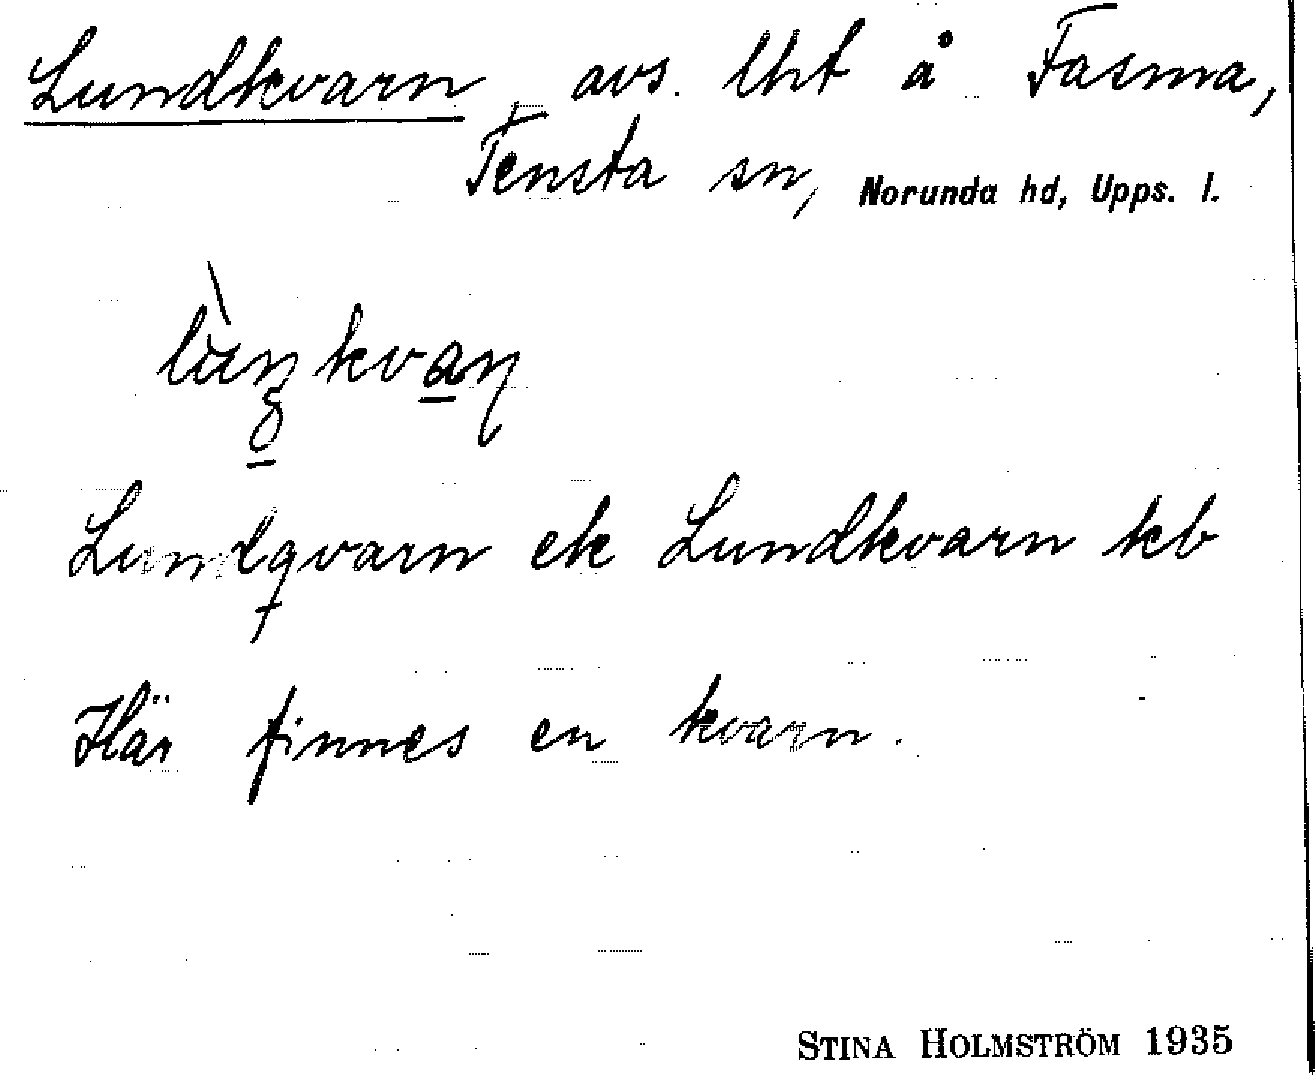 Lundkvarn, avs. lht å Fasma,
Tensta sn, Norunda hd, Upps. l.
Lundqvarn ek Lundkvarn kb
Här finnes en kvarn.
STINA HOLMSTRÖM 1935